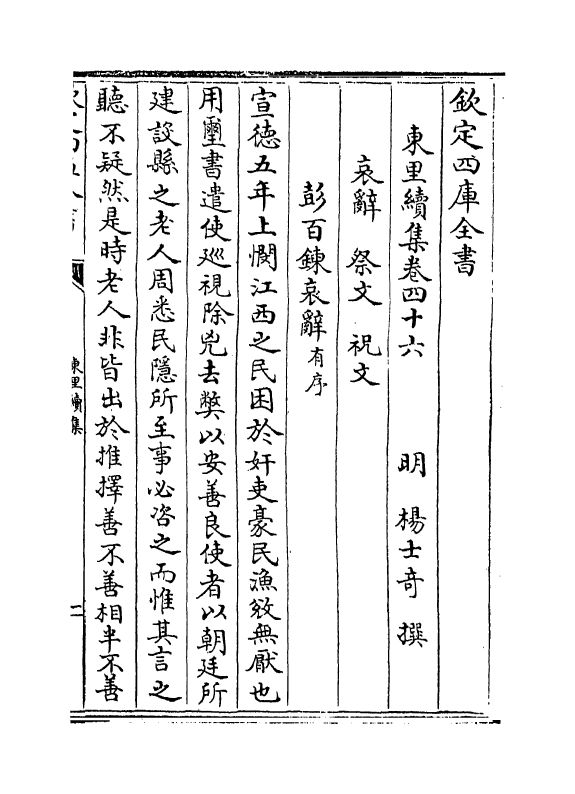 欽定四庫全書
東里續集卷四十六　　明　楊士奇　撰
哀辭　祭文　祝文
彭百鍊哀辭有序
宣德五年上閔江西之民困於奸吏豪民漁斂無厭也
用璽書遣使巡視除兇去弊以安善良使者以朝廷所
建設縣之老人周悉民隱所至事必咨之而惟其言之
聽不疑然是時老人非皆出於推擇善不善相半不善
東里續集